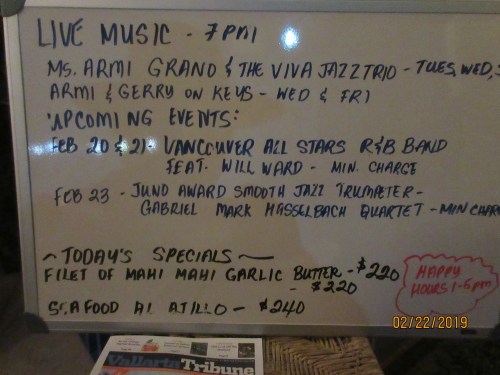 LIVE MUSIC - 7PM
MS. ARMI GRANO & THE VIVA JAZZ TRIO - TUES, WED,
ARMI & GERRY ON KEYS - WED & FRI
UPCOMING EVENTS:
FEB 20 & 21 - VANCOUVER ALL STARS R&B BAND
FEAT. WILL WARD - MIN. CHARGE
FEB 23 - JUNO AWARD SMOOTH JAZZ TRUMPETER -
GABRIEL MARK HASSELBACH QUARTET - MIN CHAR
~ TODAY'S SPECIALS ~
FILET OF MAHI MAHI GARLIC BUTTER - $220
- $220
SEAFOOD AL AJILLO - $240
HAPPY
HOURS 1-6pm
02/22/2019
Vallarta Tribune